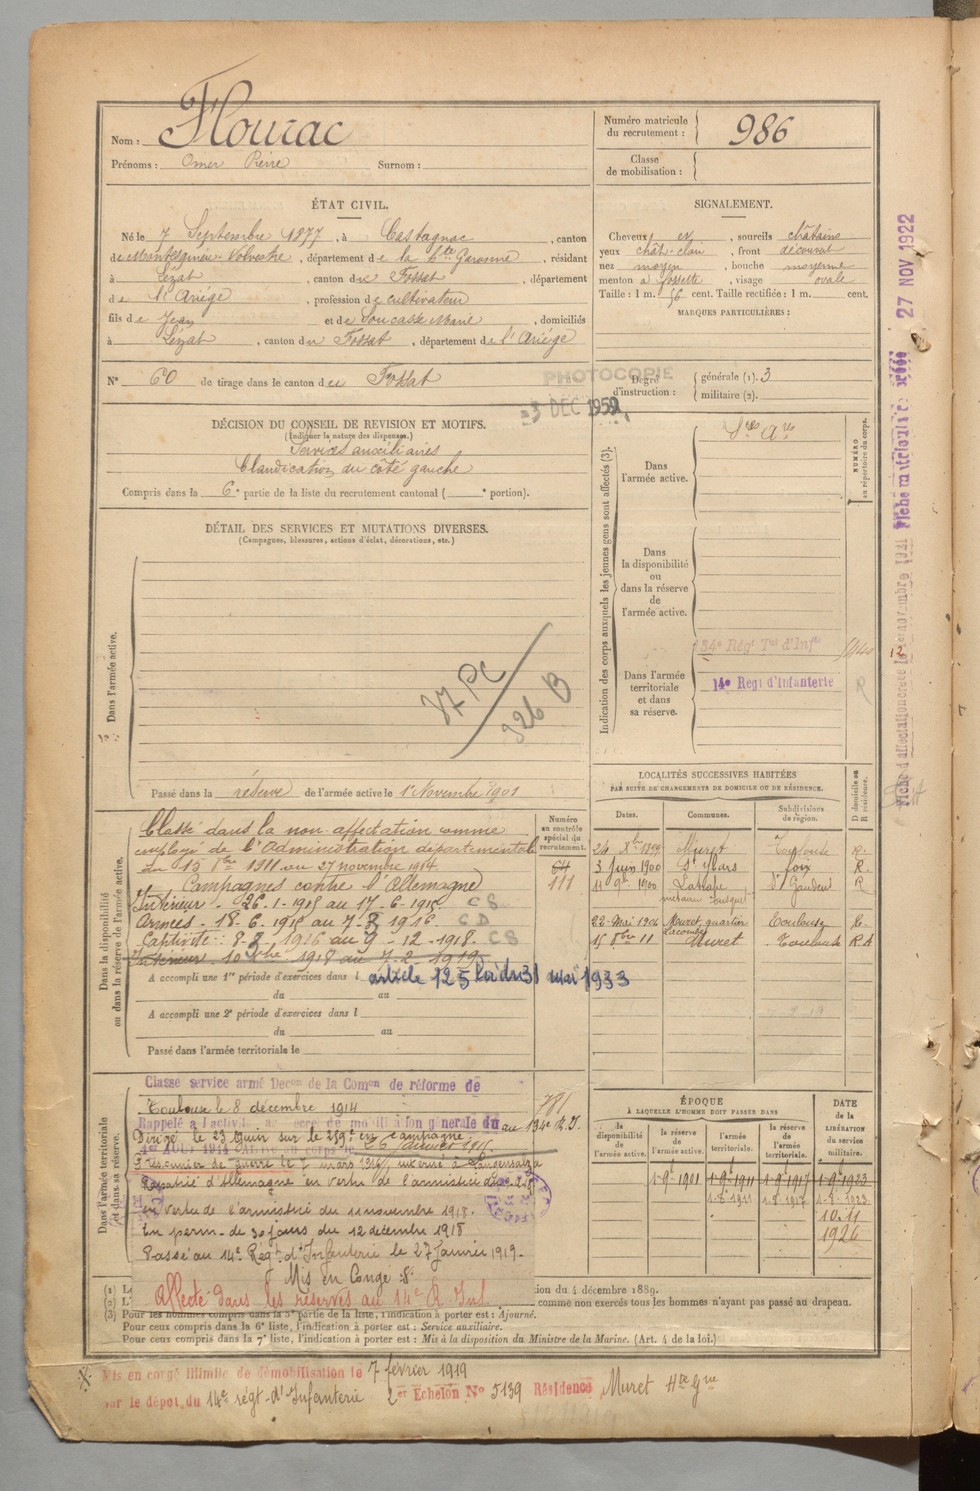 Nom : Flourac
Prénoms : Omer Pierre Surnom :
Numéro matricule du recrutement : 986
Classe de mobilisation :
ÉTAT CIVIL.
Né le 7 Septembre 1877, à Castagnac, canton
de Montesquieu-Volvestre, département de la Hte Garonne, résidant
à Lézat, canton du Fossat, département
de l'Ariège, profession de cultivateur
fils de Jean et de Soucasse Marie, domiciliés
à Lézat, canton du Fossat, département de l'Ariège
N° 60 de tirage dans le canton du Fossat
SIGNALEMENT.
Cheveux et, sourcils châtains
yeux chât-clair, front découvert
nez moyen, bouche moyenne
menton à fossette, visage ovale
Taille : 1 m. 56 cent. Taille rectifiée : 1 m. cent.
MARQUES PARTICULIÈRES :
Degré d'instruction : générale (1). 3
militaire (2).
PHOTOCOPIE
-3 DEC 1952
DÉCISION DU CONSEIL DE REVISION ET MOTIFS.
(Indiquer la nature des dispenses.)
Services auxiliaires
Claudication du côté gauche
Compris dans la 6e partie de la liste du recrutement cantonal ( e portion).
DÉTAIL DES SERVICES ET MUTATIONS DIVERSES.
(Campagnes, blessures, actions d'éclat, décorations, etc.)
Dans l'armée active.
87 PC
926 B
Passé dans la réserve de l'armée active le 1er Novembre 1901
Indication des corps auxquels les jeunes gens sont affectés (3).
Dans l'armée active.
Sces Ares
NUMÉRO au répertoire du corps.
Dans la disponibilité ou dans la réserve de l'armée active.
Dans l'armée territoriale et dans sa réserve.
134e Régt Tal d'Infie
14e Régt d'Infanterie
R
LOCALITÉS SUCCESSIVES HABITÉES
PAR SUITE DE CHANGEMENTS DE DOMICILE OU DE RÉSIDENCE.
Dates. Communes. Subdivisions de région. D domicile ou R résidence.
Muret Toulouse R.
3 Juin 1900 St Ybars Foix R.
11 9bre 1900 St Gaudens R
22 Mai 1904 Muret, quartier Toulouse R.
Lacombe
15 8bre 11 Muret Toulouse RA
Dans la disponibilité ou dans la réserve de l'armée active.
Numéro au contrôle spécial du recrutement.
64
111
Classé dans la non-affectation comme
employé de l'Administration départementale
du 15 8bre 1911 au 27 novembre 1914
Campagnes contre l'Allemagne
Intérieur - 26-1-1915 au 17-6-1915 CS
Armées - 18-6-1915 au 7-3-1916 CD
Captivité : 8-3-1916 au 9-12-1918. CS
Intérieur 10 Xbre 1918 au 7-2-1919
A accompli une 1re période d'exercices dans l
article 125 loi du 31 mai 1933
du au
A accompli une 2e période d'exercices dans l
du au
Passé dans l'armée territoriale le
Dans l'armée territoriale et dans sa réserve.
Classé service armé Decon de la Comon de réforme de
Toulouse le 8 décembre 1914
Rappelé à l'activité
Dirigé le 23 Juin sur le 259e en campagne.
Prisonnier de guerre le 7 mars 1916, interné à Langensalza
Rapatrié d'Allemagne en vertu de l'armistice
en vertu de l'armistice du 11 novembre 1918.
En perm. de 30 jours du 12 décembre 1918
Passé au 14e Régt d'Infanterie le 27 Janvier 1919.
Mis en Congé
Affecté dans les réserves au 14e R. Inf.
ÉPOQUE
À LAQUELLE L'HOMME DOIT PASSER DANS
la disponibilité de l'armée active. la réserve de l'armée active. l'armée territoriale. la réserve de l'armée territoriale.
DATE de la LIBÉRATION du service militaire.
1-9-1901 1-9-1911 1-9-1917 1-9-1923
1-8-1911 1-8-1917 1-8-1923
10.11
1926
(1) L
ion du 4 décembre 1889.
(2) L'
comme non exercés tous les hommes n'ayant pas passé au drapeau.
(3) Pour les hommes compris dans la 5e partie de la liste, l'indication à porter est : Ajourné.
Pour ceux compris dans la 6e liste, l'indication à porter est : Service auxiliaire.
Pour ceux compris dans la 7e liste, l'indication à porter est : Mis à la disposition du Ministre de la Marine. (Art. 4 de la loi.)
Mis en congé illimité de démobilisation le 7 février 1919
par le dépôt du 14e régt d'Infanterie 2er Echelon N° 5139 Résidence Muret Hte Gne
27 NOV 1922